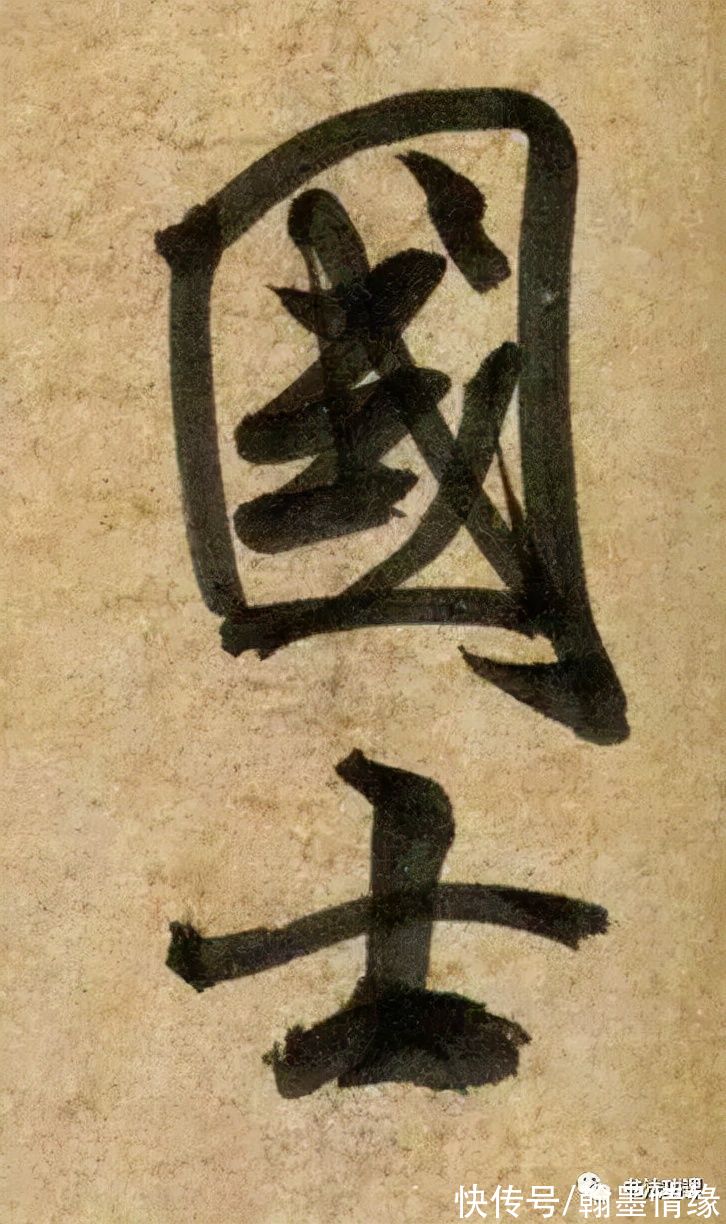 國士
书法功課
快传号/翰墨情缘